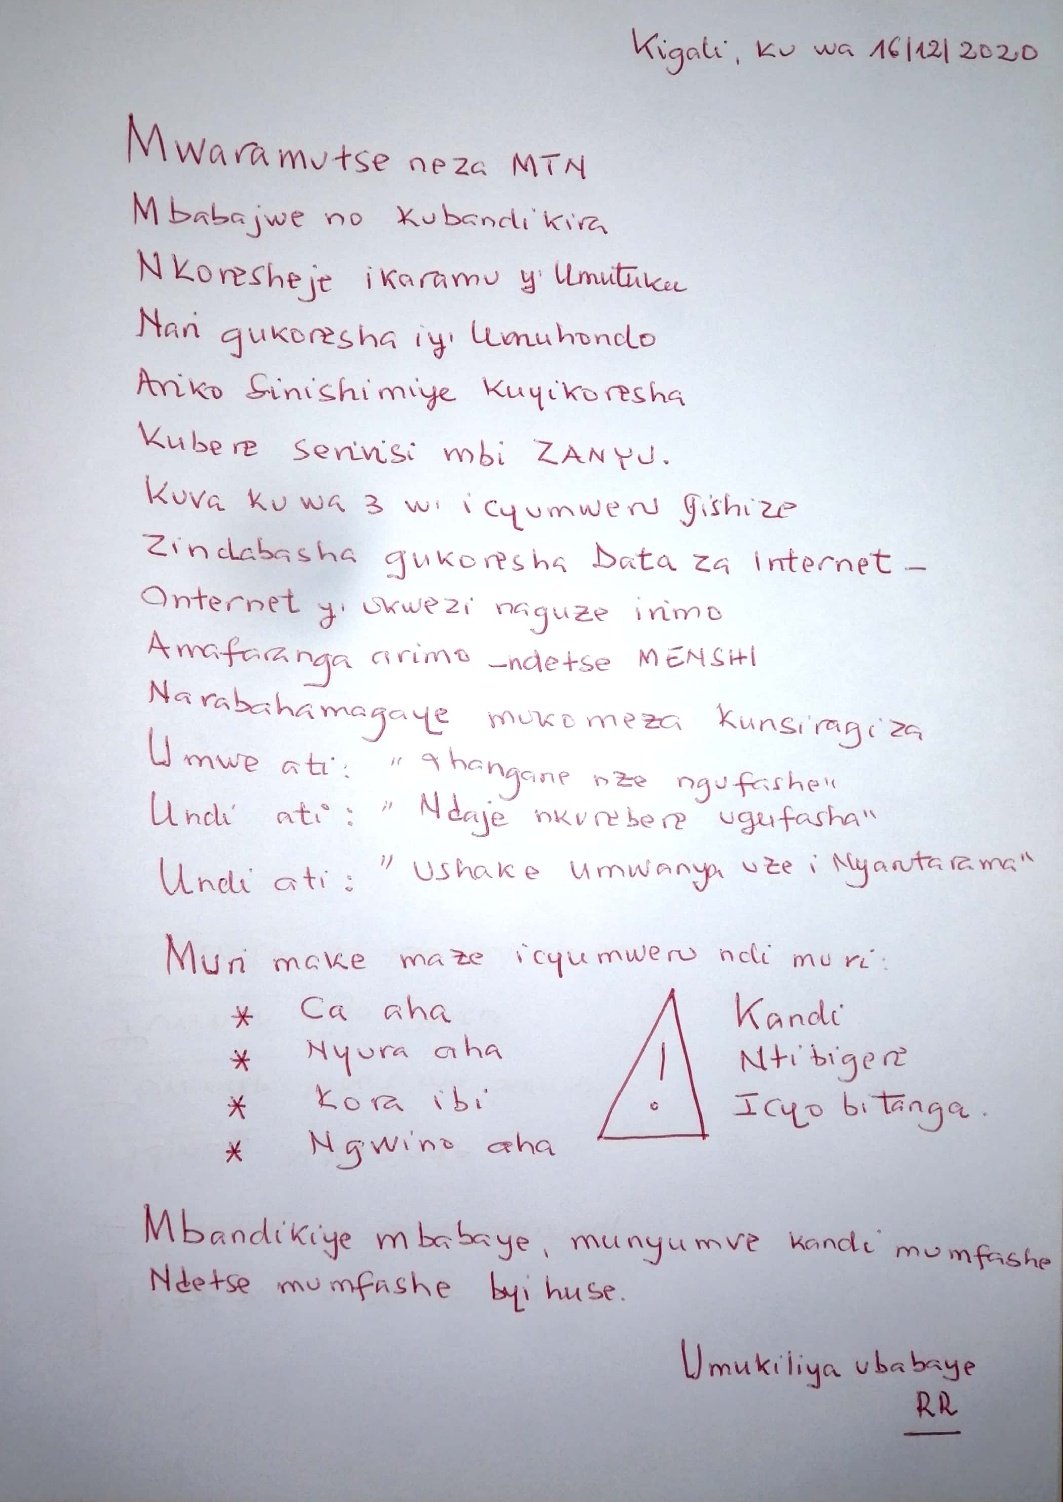 Kigali, ku wa 16/12/2020
Mwaramutse neza MTN
Mbabajwe no kubandikira
Nkoresheje ikaramu y'Umutuku
Nari gukoresha iy'Umuhondo
Ariko sinishimiye kuyikoresha
Kubera serivisi mbi ZANYU.
Kuva ku wa 3 w'icyumweru gishize
Zindabasha gukoresha Data za internet -
Internet y'ukwezi naguze irimo
Amafaranga arimo -ndetse MENSHI
Narabahamagaye mukomeza kunsiragiza
Umwe ati: "Ihangane nze ngufashe"
Undi ati: "Ndaje nkurebere ugufasha"
Undi ati: "Ushake umwanya uze i Nyarutarama"
Muri make maze icyumweru ndi muri:
* Ca aha
* Nyura aha
* Kora ibi
* Ngwino aha
!
Kandi
Ntibigere
Icyo bitanga.
Mbandikiye mbabaye, munyumve kandi mumfashe
Ndetse mumfashe byihuse.
Umukiliya ubabaye
RR